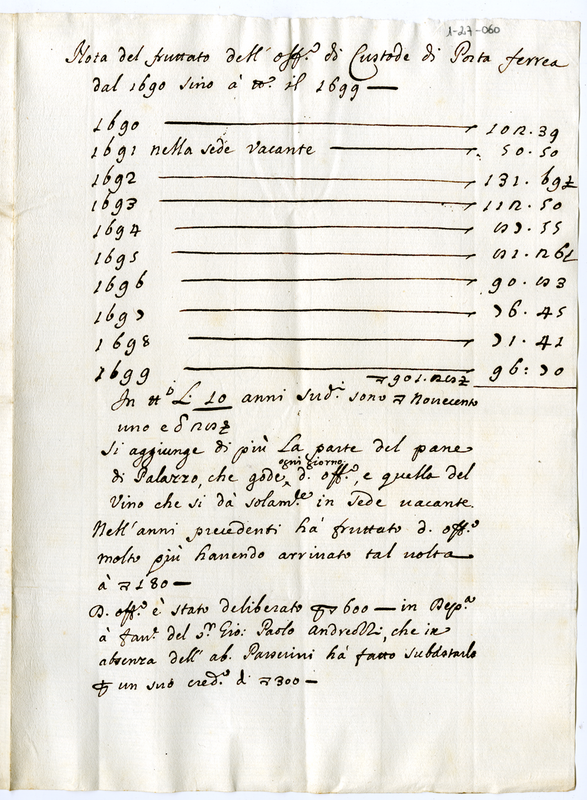 1-27-060
Nota del fruttato dell' off.º di Custode di Porta ferrea
dal 1690 sino à tt.º il 1699 —
1690 — 102.39
1691 nella sede Vacante — 50.50
1692 — 131.69½
1693 — 112.50
1694 — 55
1695
1696 — 90.
1697 — 76.45
1698 — 71.41
1699 — 96:70
901.
In tt.º L 10 anni sud.ⁱ sono Novecento
uno e
Si aggiunge di più La parte del pane
di Palazzo, che gode ogni giorno d. off.º, e quella del
Vino che si dà solam.te in Sede vacante.
Nell' anni precedenti ha' fruttato d. off.º
molto più havendo arrivato tal volta
à 180 —
D. off.º è stato deliberato 600 — in Dep.
à fav.º del S.r Gio: Paolo Andreozzi, che in
absenza dell' ab. Passerini ha' fatto subastarlo
un suo cred.º di 300 —